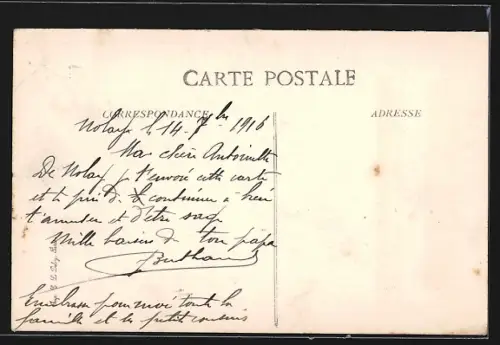 CARTE POSTALE
CORRESPONDANCE
ADRESSE
Nolay le 14 7bre 1916
Ma chère Antoinette
De Nolay je t'envoie cette carte
et te prie de continuer à bien
t'amuser et d'être sage
Mille baisers de ton papa
Berthaud
Embrasse pour moi toute la
famille et les petits cousins